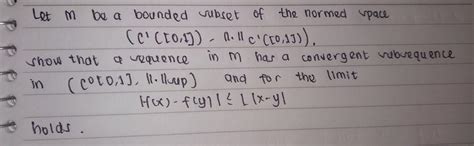 Let M be a bounded subset of the normed space
(C'([0,1]), ||.|| C'([0,1])).
show that a sequence in M has a convergent subsequence
in (C⁰[0,1], ||.||sup) and for the limit
|f(x) - f(y)| ≤ L |x-y|
holds.